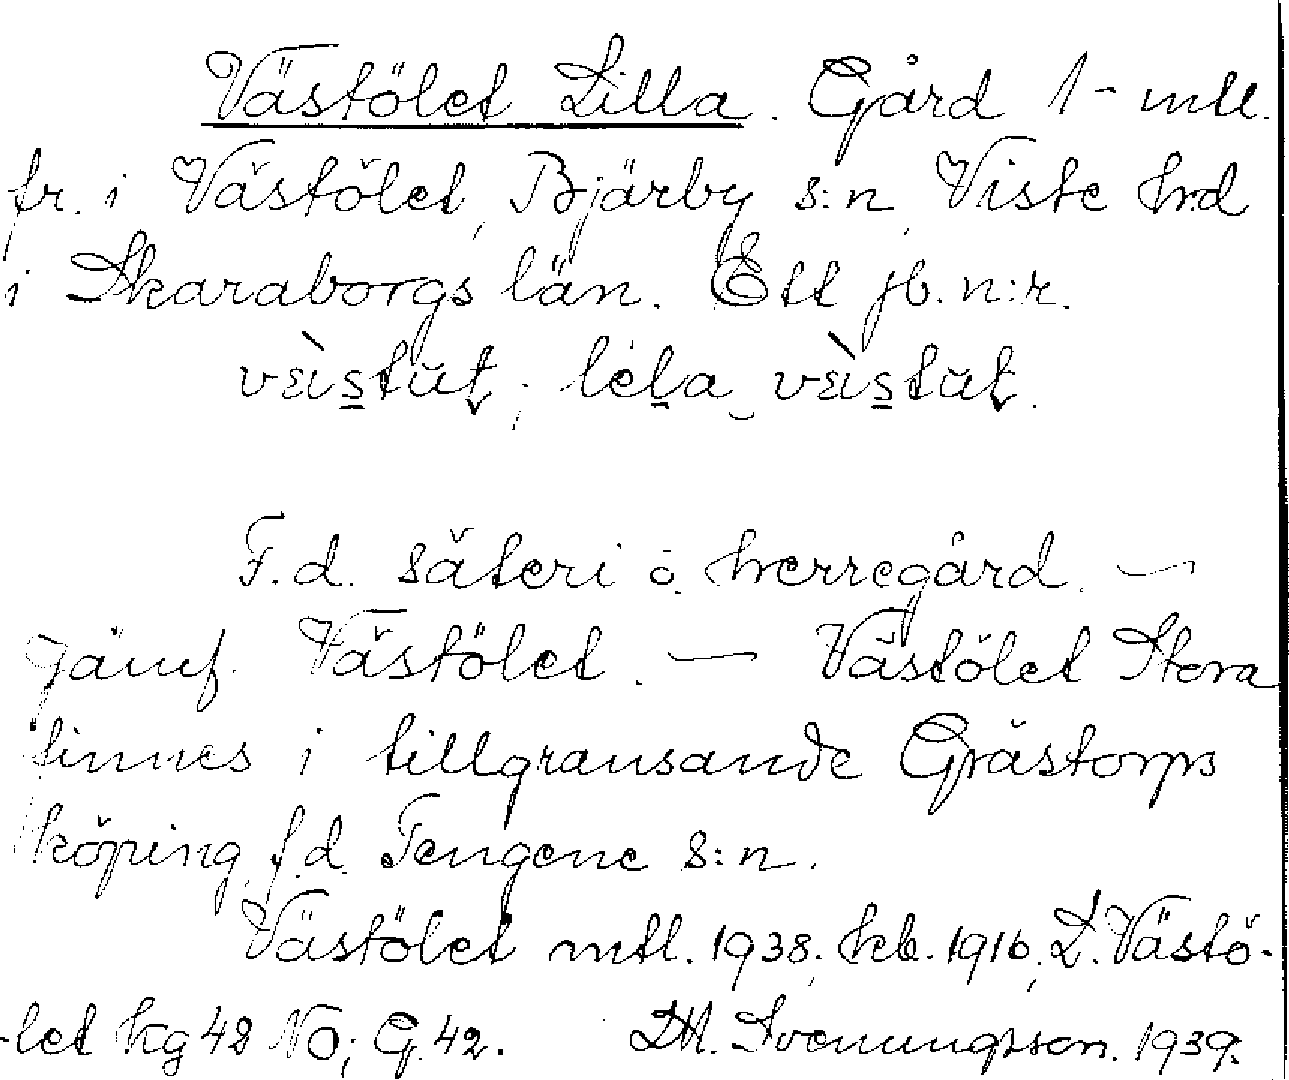 Västölet Lilla. Gård 1 - mtl.
fr. i Västölet, Bjärby s:n, Viste hrd
i Skaraborgs län. Ett jb. n:r.
vàistŭt; lela vàistŭt.
F.d. säteri o. herregård. —
Jämf. Västölet. — Västölet Stora
finnes i tillgränsande Grästorps
köping, f.d. Tengene s:n.
Västölet mtl. 1938; hkb. 1916; L. Västö-
-let kg 42 NO; G. 42. D.M. Svenungsson. 1939.